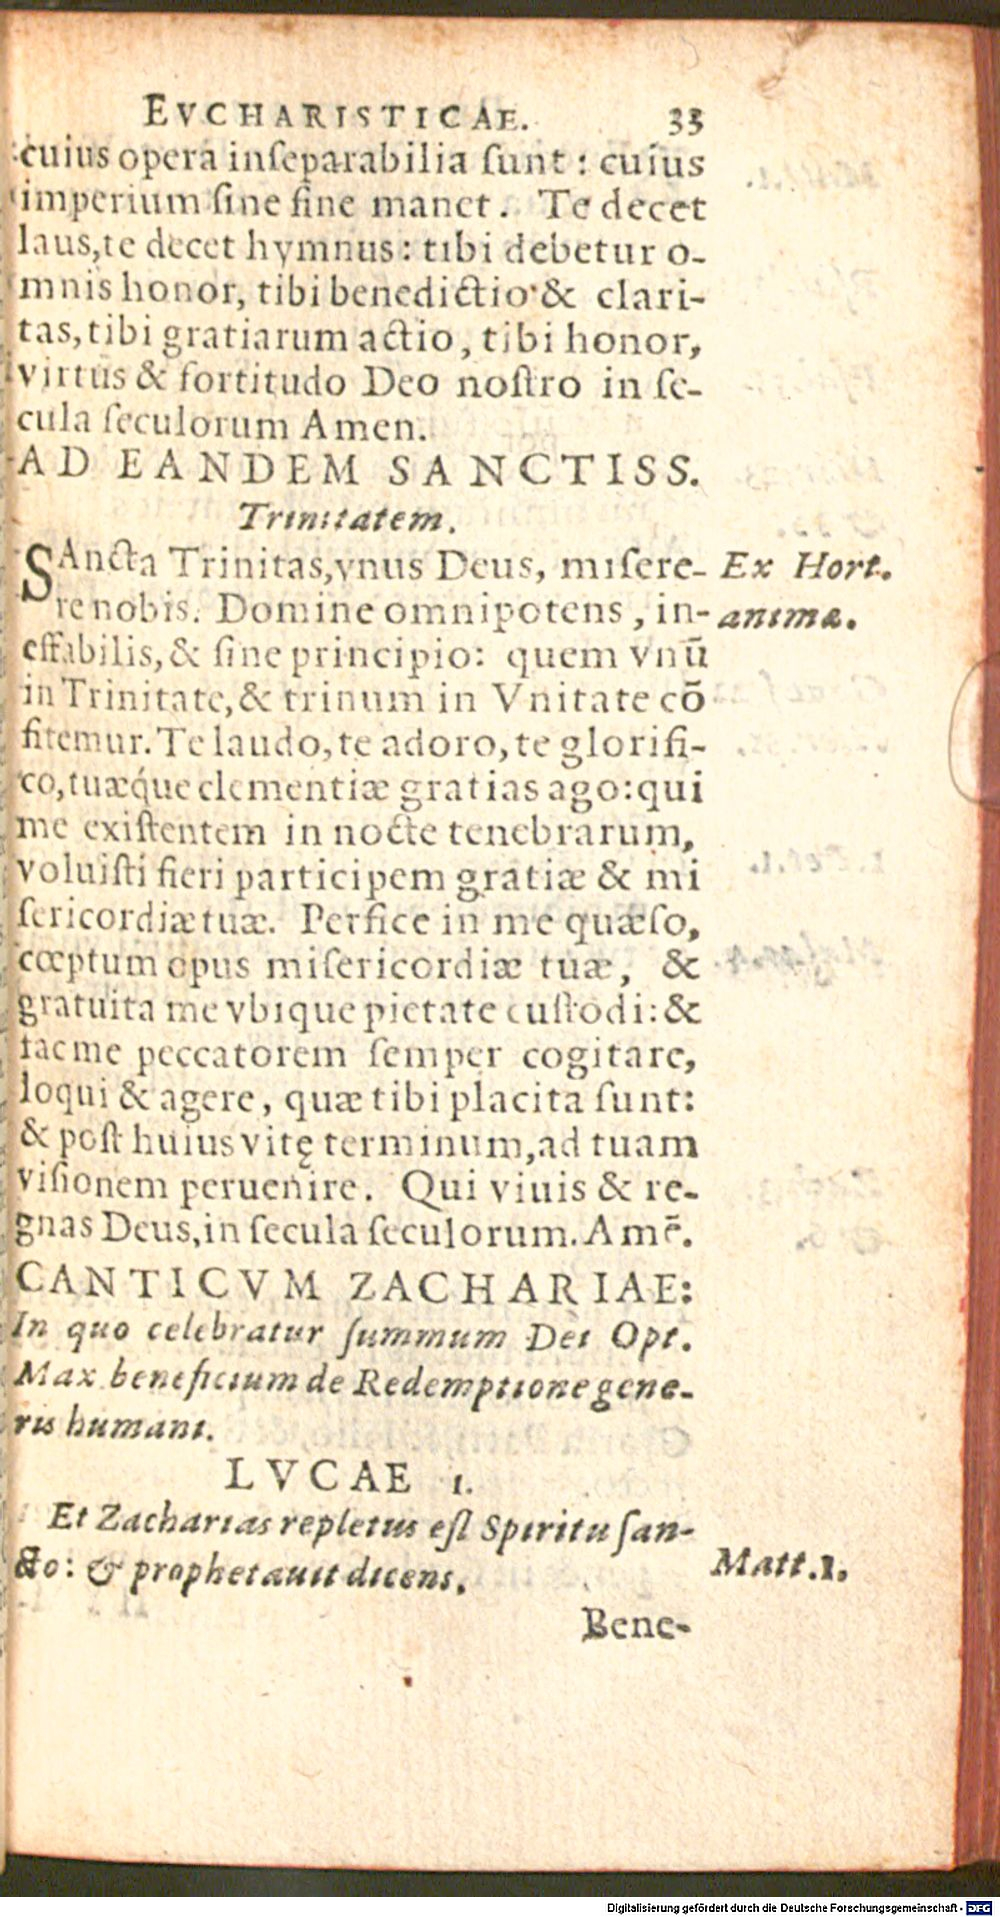 EVCHARISTICAE. 33
cuius opera inſeparabilia ſunt : cuius
imperium ſine fine manet. Te decet
laus, te decet hymnus: tibi debetur o-
mnis honor, tibi benedictio & clari-
tas, tibi gratiarum actio, tibi honor,
virtus & fortitudo Deo noſtro in ſe-
cula ſeculorum Amen.
AD EANDEM SANCTISS.
Trinitatem.
SAncta Trinitas, vnus Deus, miſere- Ex Hort.
re nobis. Domine omnipotens, in- animæ.
effabilis, & ſine principio: quem vnū
in Trinitate, & trinum in Vnitate cō
fitemur. Te laudo, te adoro, te glorifi-
co, tuæq́ue clementiæ gratias ago: qui
me exiſtentem in nocte tenebrarum,
voluiſti fieri participem gratiæ & mi
ſericordiæ tuæ. Perfice in me quæſo,
cœptum opus miſericordiæ tuæ, &
gratuita me vbique pietate cuſtodi: &
fac me peccatorem ſemper cogitare,
loqui & agere, quæ tibi placita ſunt:
& poſt huius vitę terminum, ad tuam
viſionem peruenire. Qui viuis & re-
gnas Deus, in ſecula ſeculorum. Amē.
CANTICVM ZACHARIAE:
In quo celebratur ſummum Dei Opt.
Max. beneficium de Redemptione gene-
ris humani.
LVCAE 1.
Et Zacharias repletus eſt Spiritu ſan-
cto: & prophetauit dicens. Matt. 1.
Bene-
Digitalisierung gefördert durch die Deutsche Forschungsgemeinschaft - DFG